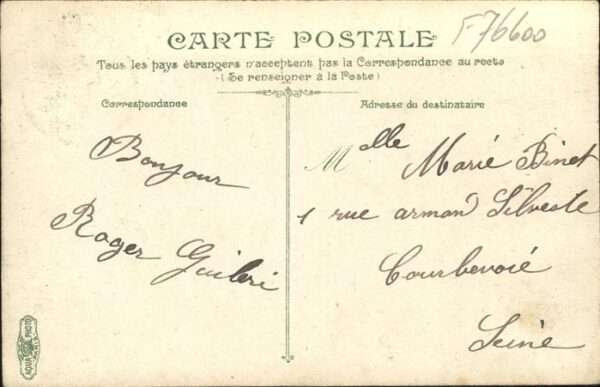 F76600
CARTE POSTALE
Tous les pays étrangers n'acceptent pas la Correspondance au recto
(Se renseigner à la Poste)
Correspondance
Adresse du destinataire
Bonjour
Roger
Melle Marie Binet
1 rue arman Silveste
Courbevoie
Seine
AQUA PHOTO